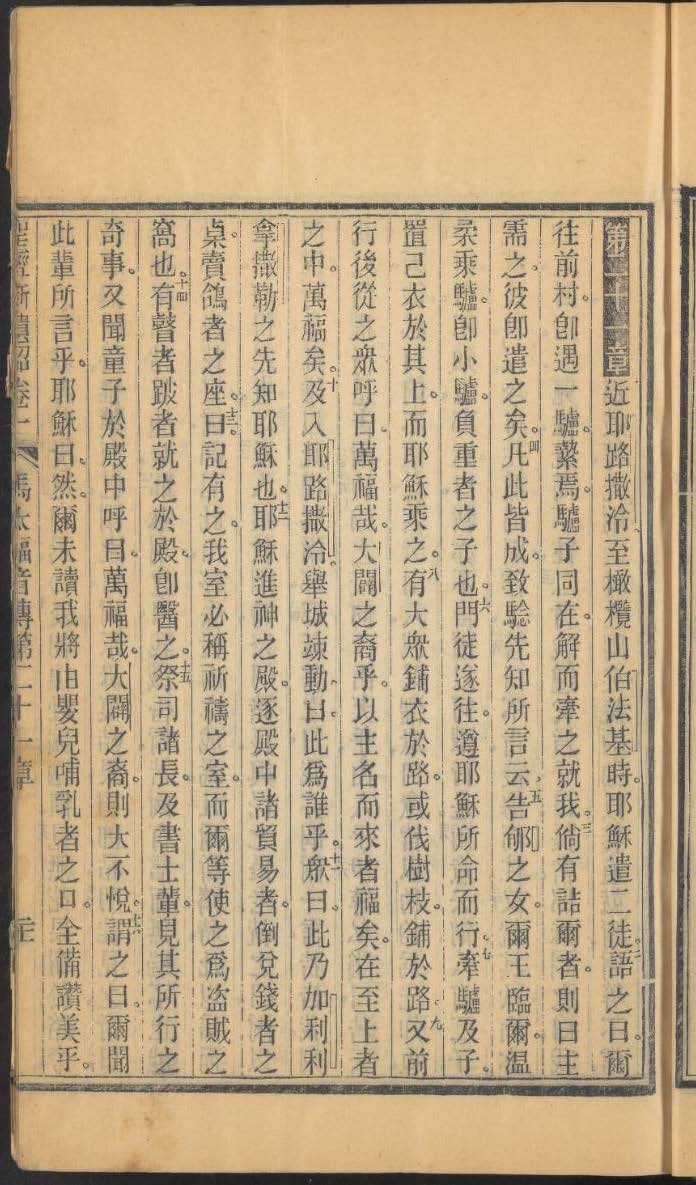 第二十一章近耶路撒冷至橄欖山伯法基時耶穌遣二徒二語之曰爾
往前村卽遇一驢縶焉驢子同在解而牽之就我三倘有詰爾者則曰主
需之彼卽遣之矣四凡此皆成致騐先知所言云五告郇之女爾王臨爾溫
柔乘驢卽小驢負重者之子也六門徒遂往遵耶穌所命而行七牽驢及子
置己衣於其上而耶穌乘之八有大衆鋪衣於路或伐樹枝鋪於路九又前
行後從之衆呼曰萬福哉大闢之裔乎以主名而來者福矣在至上者
之中萬福矣十及入耶路撒冷舉城竦動曰此爲誰乎十一衆曰此乃加利利
拿撒勒之先知耶穌也十二耶穌進神之殿逐殿中諸貿易者倒兌錢者之
桌賣鴿者之座十三曰記有之我室必稱祈禱之室而爾等使之爲盜賊之
窩也十四有瞽者跛者就之於殿卽醫之十五祭司諸長及書士輩見其所行之
奇事又聞童子於殿中呼曰萬福哉大闢之裔則大不悅十六謂之曰爾聞
此輩所言乎耶穌曰然爾未讀我將由嬰兒哺乳者之口全備讚美乎
聖經新遺詔卷一 馬太福音傳第二十一章